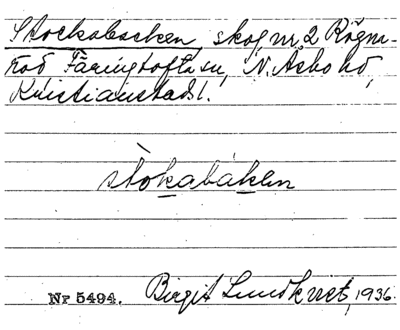 Stockabacken, skog nr 2 Rögna-
röd Färingtofta sn, N. Åsbo hd,
Kristianstads l.
stokabaken
Nr 5494. Birgit Lundkvist, 1936.